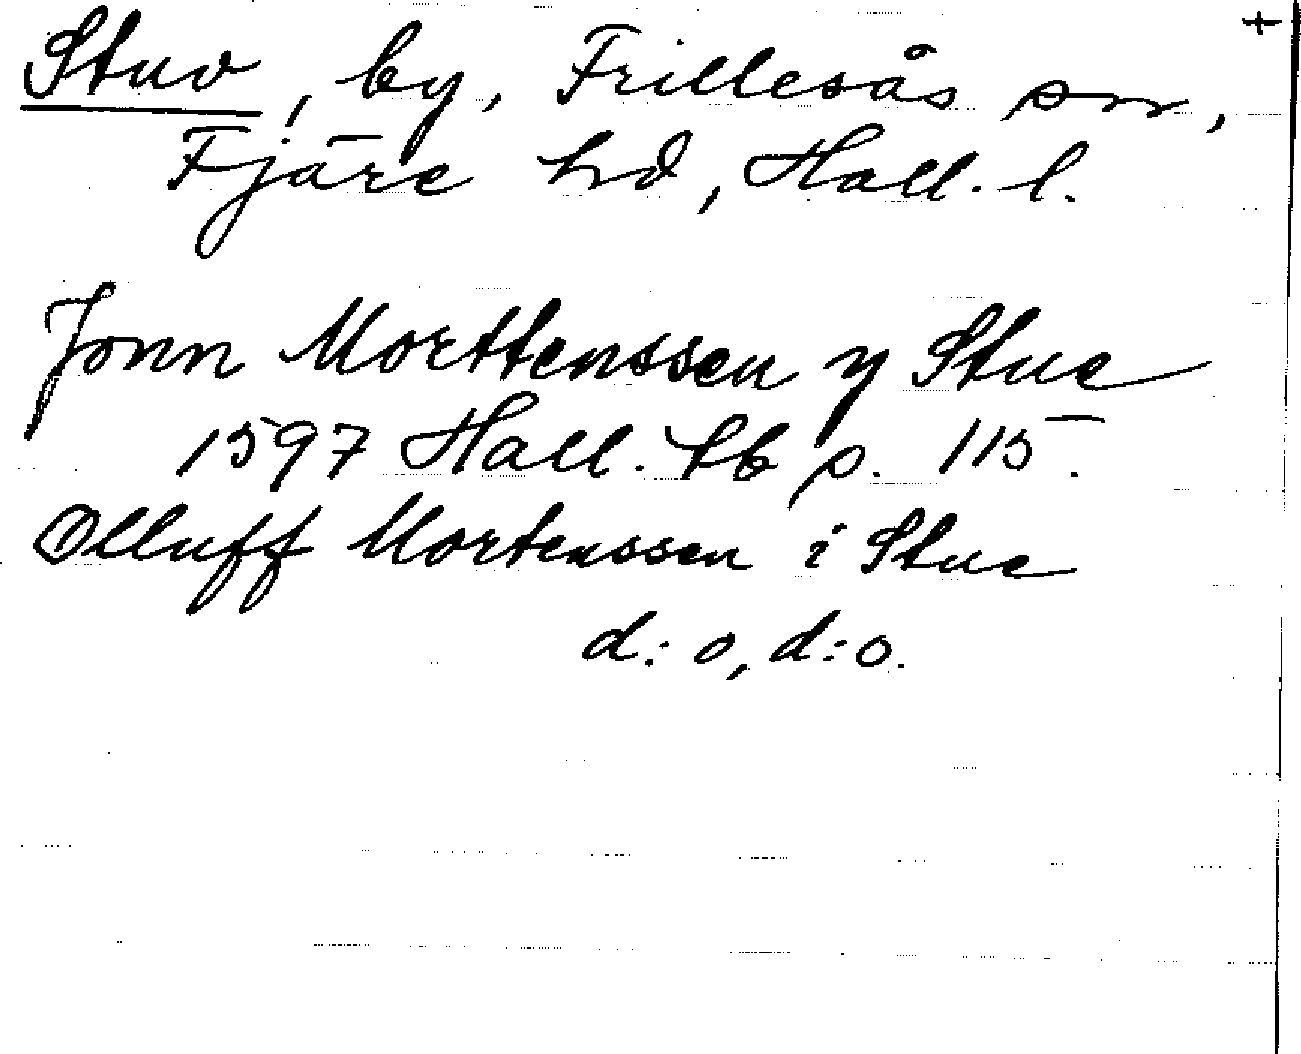 Stuv, by, Frillesås sn,
Fjäre hd, Hall. l.
Jonn Morttenssen y Stue
1597 Hall. lb p. 115.
Olluff Mortenssen i Stue
d:o, d:o.